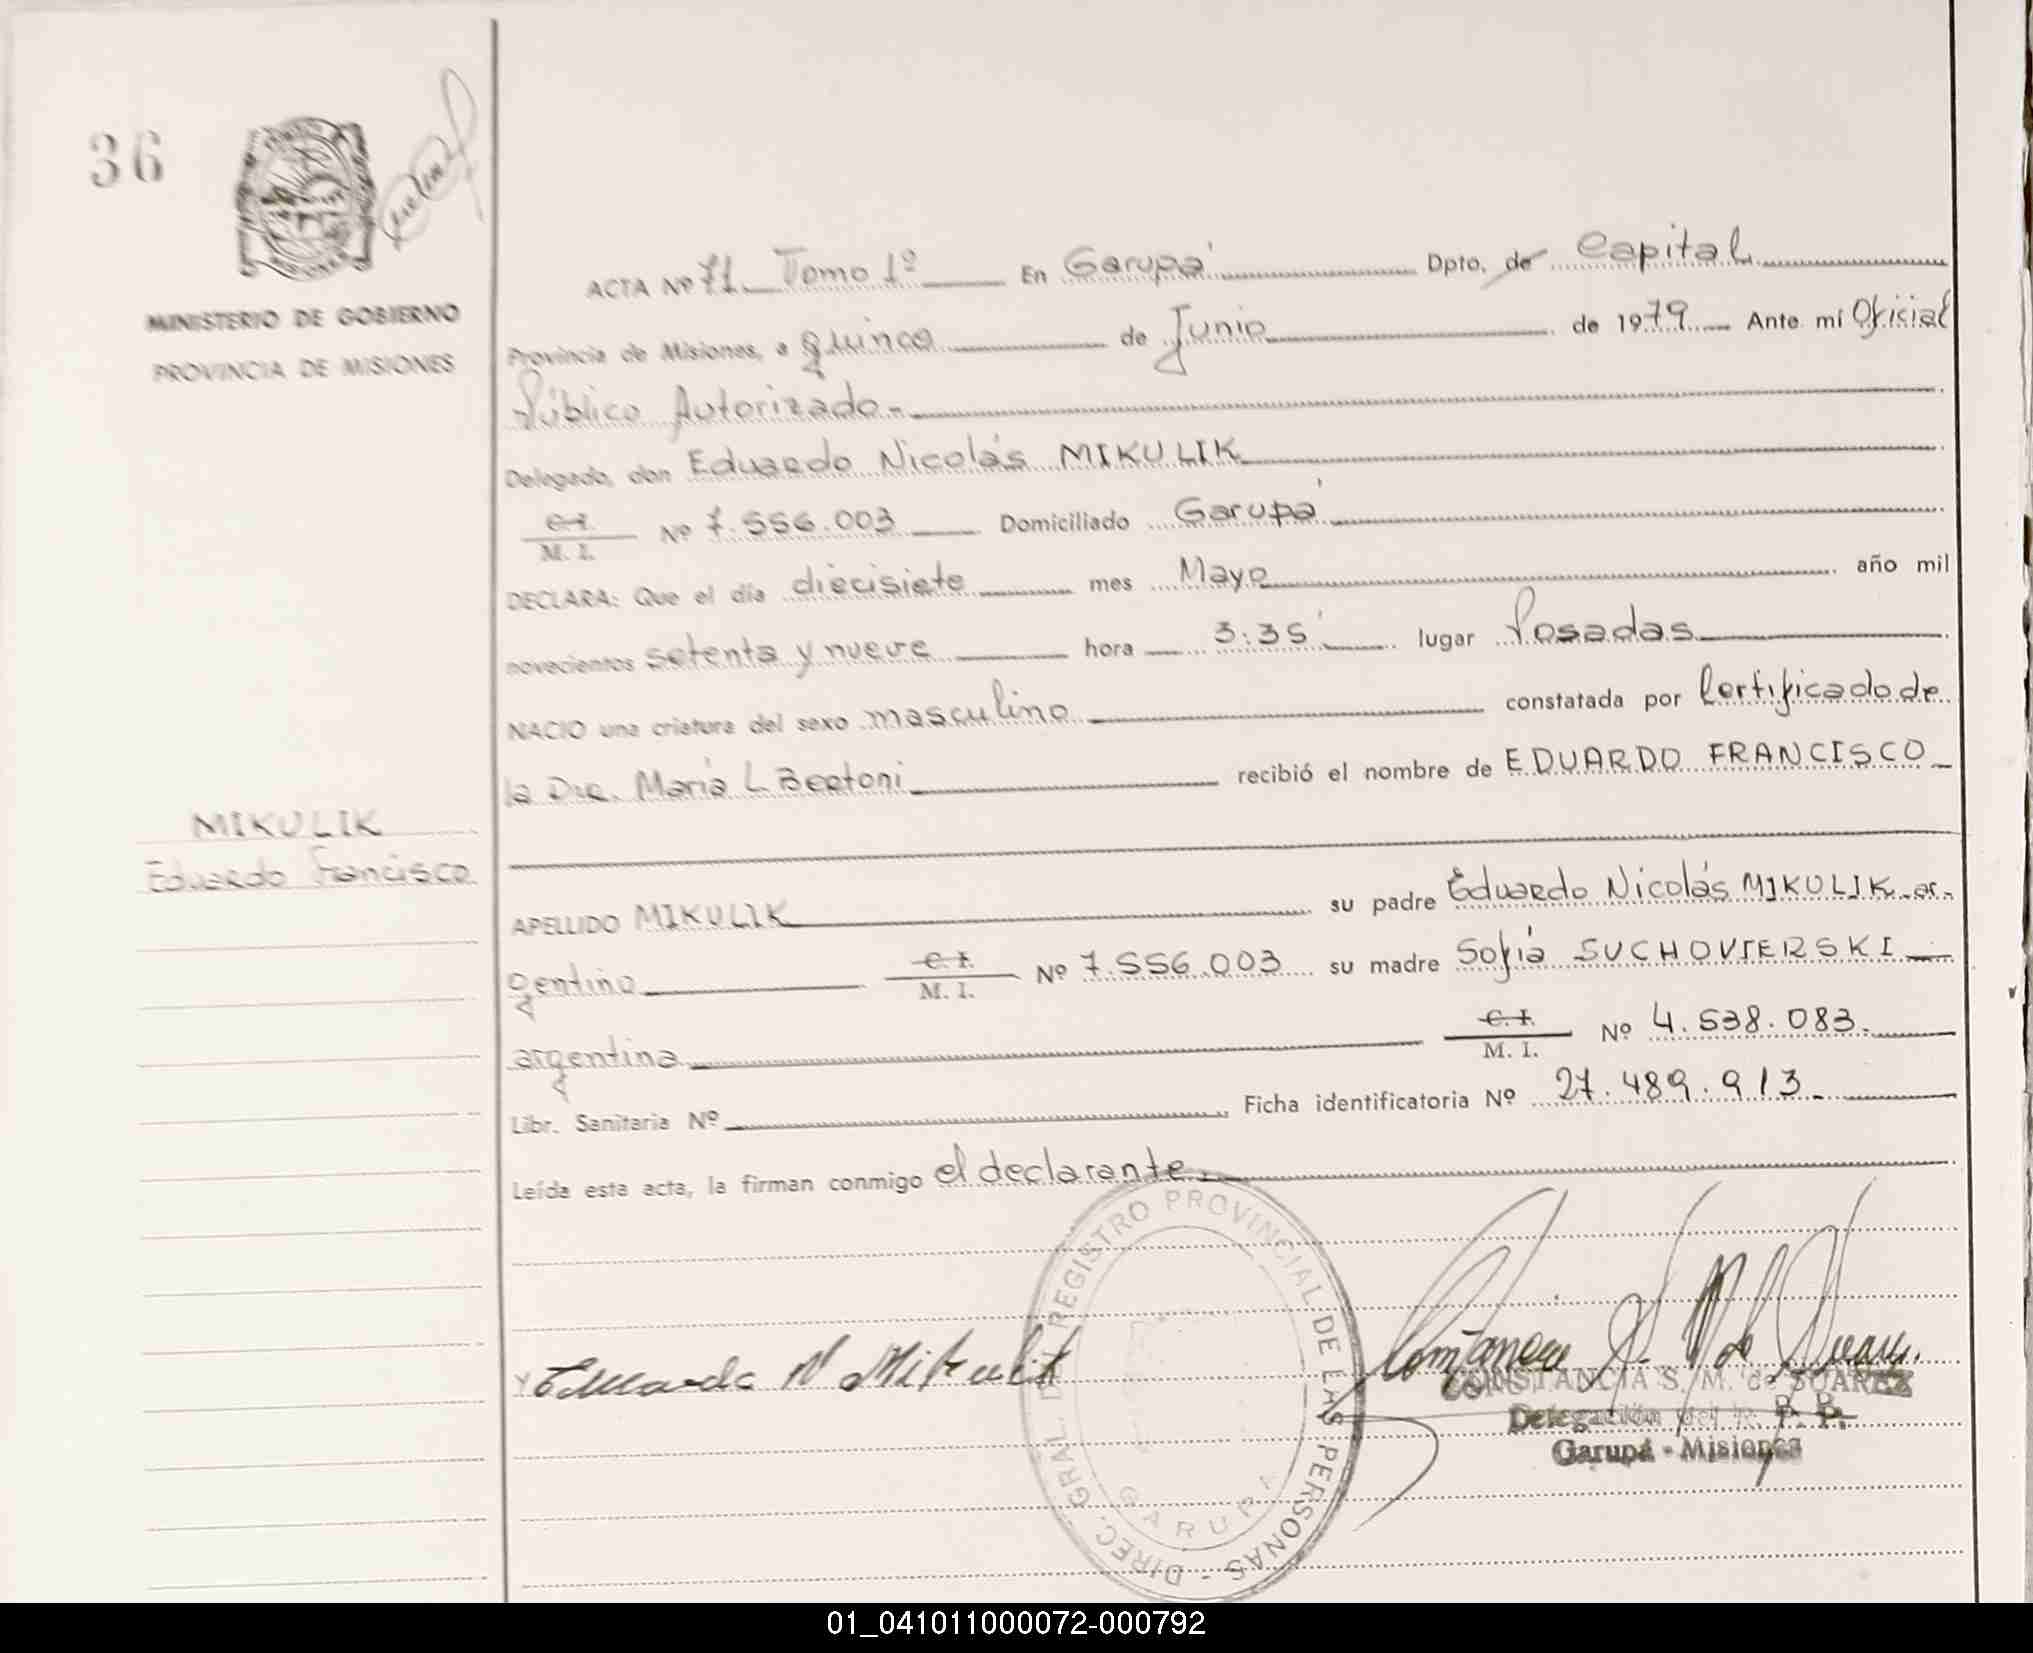 36
MINISTERIO DE GOBIERNO
PROVINCIA DE MISIONES
ACTA Nº 71 Tomo 1º En Garupá Dpto. de Capital
Provincia de Misiones, a quince de Junio de 1979 Ante mí Oficial
Público Autorizado.-
Delegado, don Eduardo Nicolás MIKULIK
C. I.
M. I. Nº 7.556.003 Domiciliado Garupá
DECLARA: Que el día diecisiete mes Mayo año mil
novecientos setenta y nueve hora 3:35' lugar Posadas
NACIO una criatura del sexo masculino constatada por Certificado de
la Dra. María L Bertoni recibió el nombre de EDUARDO FRANCISCO
MIKULIK
Eduardo Francisco
APELLIDO MIKULIK su padre Eduardo Nicolás MIKULIK ar-
gentino C. I.
M. I. Nº 7.556.003 su madre Sofía SUCHOVIERSKI
argentina C. I.
M. I. Nº 4.538.083.
Libr. Sanitaria Nº Ficha identificatoria Nº 27.489.913.
Leída esta acta, la firman conmigo el declarante.
DIREC. GRAL. DEL REGISTRO PROVINCIAL DE LAS PERSONAS -
GARUPA
Eduardo N Mikulik
CONSTANCIA S. M. de SUAREZ
Delegación del R. P. P.
Garupá - Misiones
01_041011000072-000792